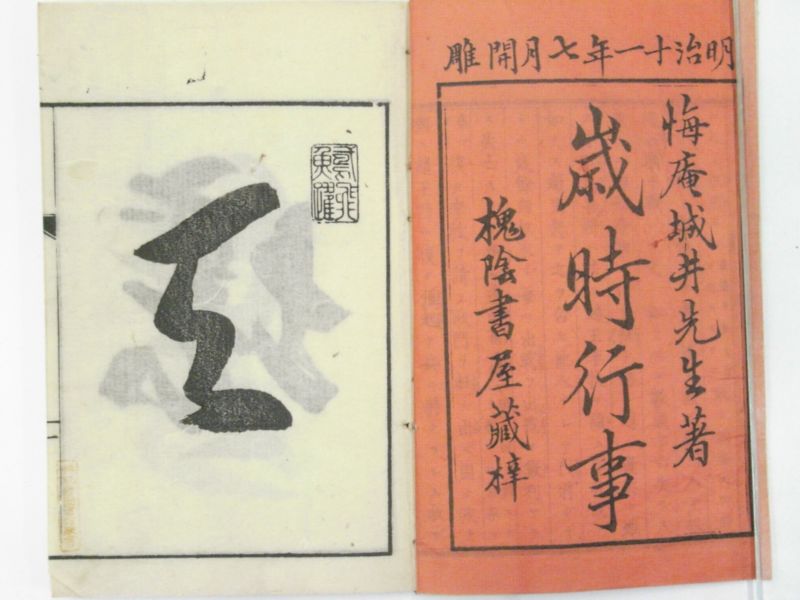 明治十一年七月開雕
悔庵城井先生著
歳時行事
槐陰書屋藏梓
鳶飛
魚躍